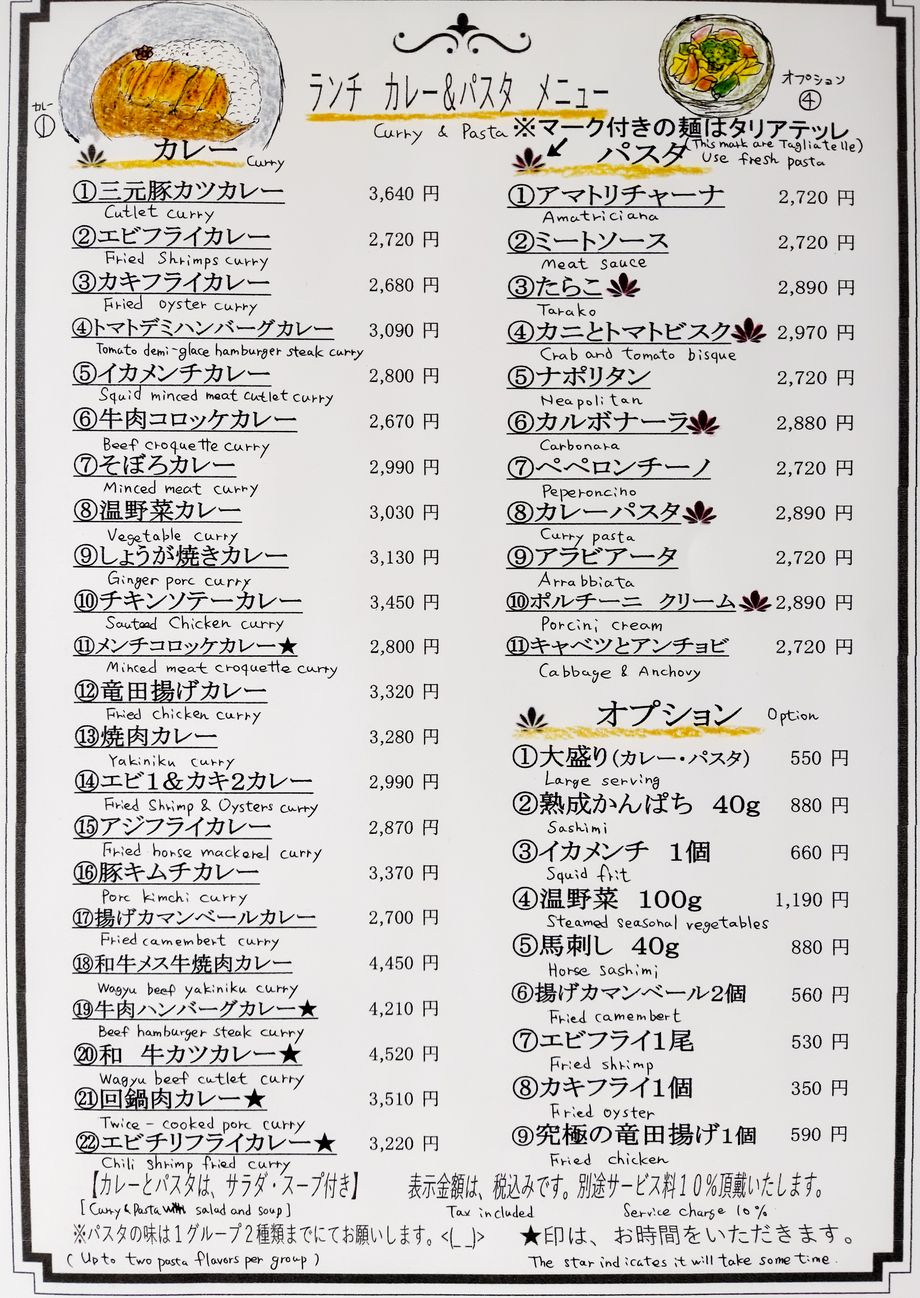 ランチ カレー&パスタ メニュー
Curry & Pasta
カレー
①
オプション
④
カレー Curry
①三元豚カツカレー 3,640 円
Cutlet curry
②エビフライカレー 2,720 円
Fried Shrimps curry
③カキフライカレー 2,680 円
Fried oyster curry
④トマトデミハンバーグカレー 3,090 円
Tomato demi-glace hamburger steak curry
⑤イカメンチカレー 2,800 円
Squid minced meat cutlet curry
⑥牛肉コロッケカレー 2,670 円
Beef croquette curry
⑦そぼろカレー 2,990 円
Minced meat curry
⑧温野菜カレー 3,030 円
Vegetable curry
⑨しょうが焼きカレー 3,130 円
Ginger porc curry
⑩チキンソテーカレー 3,450 円
Sauteed Chicken curry
⑪メンチコロッケカレー★ 2,800 円
Minced meat croquette curry
⑫竜田揚げカレー 3,320 円
Fried chicken curry
⑬焼肉カレー 3,280 円
Yakiniku curry
⑭エビ1&カキ2カレー 2,990 円
Fried Shrimp & Oysters curry
⑮アジフライカレー 2,870 円
Fried horse mackerel curry
⑯豚キムチカレー 3,370 円
Porc kimchi curry
⑰揚げカマンベールカレー 2,700 円
Fried camembert curry
⑱和牛メス牛焼肉カレー 4,450 円
Wagyu beef yakiniku curry
⑲牛肉ハンバーグカレー★ 4,210 円
Beef hamburger steak curry
⑳和 牛カツカレー★ 4,520 円
Wagyu beef cutlet curry
㉑回鍋肉カレー★ 3,510 円
Twice-cooked porc curry
㉒エビチリフライカレー★ 3,220 円
Chili shrimp fried curry
※マーク付きの麺はタリアテッレ
(This mark are Tagliatelle)
Use fresh pasta
パスタ
①アマトリチャーナ 2,720 円
Amatriciana
②ミートソース 2,720 円
Meat sauce
③たらこ 2,890 円
Tarako
④カニとトマトビスク 2,970 円
Crab and tomato bisque
⑤ナポリタン 2,720 円
Neapolitan
⑥カルボナーラ 2,880 円
Carbonara
⑦ペペロンチーノ 2,720 円
Peperoncino
⑧カレーパスタ 2,890 円
Curry pasta
⑨アラビアータ 2,720 円
Arrabbiata
⑩ポルチーニ クリーム 2,890 円
Porcini cream
⑪キャベツとアンチョビ 2,720 円
Cabbage & Anchovy
オプション Option
①大盛り(カレー・パスタ) 550 円
Large serving
②熟成かんぱち 40g 880 円
Sashimi
③イカメンチ 1個 660 円
Squid frit
④温野菜 100g 1,190 円
Steamed seasonal vegetables
⑤馬刺し 40g 880 円
Horse sashimi
⑥揚げカマンベール2個 560 円
Fried camembert
⑦エビフライ1尾 530 円
Fried shrimp
⑧カキフライ1個 350 円
Fried oyster
⑨究極の竜田揚げ1個 590 円
Fried chicken
【カレーとパスタは、サラダ・スープ付き】
[Curry & Pasta with salad and soup]
表示金額は、税込みです。別途サービス料10%頂戴いたします。
Tax included Service charge 10%
※パスタの味は1グループ2種類までにてお願いします。<(_ _)>
(Up to two pasta flavors per group)
★印は、お時間をいただきます。
The star indicates it will take some time.